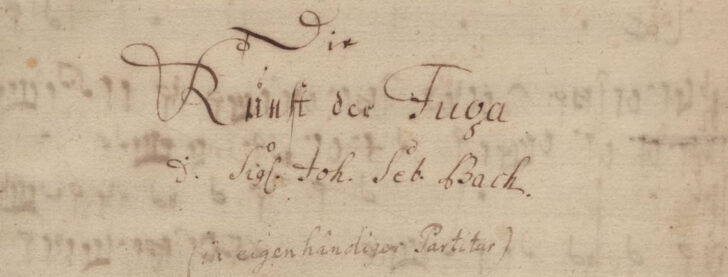 Die
Kunst der Fuga
d. Sig.º Joh. Seb. Bach.
(in eigenhändiger Partitur)